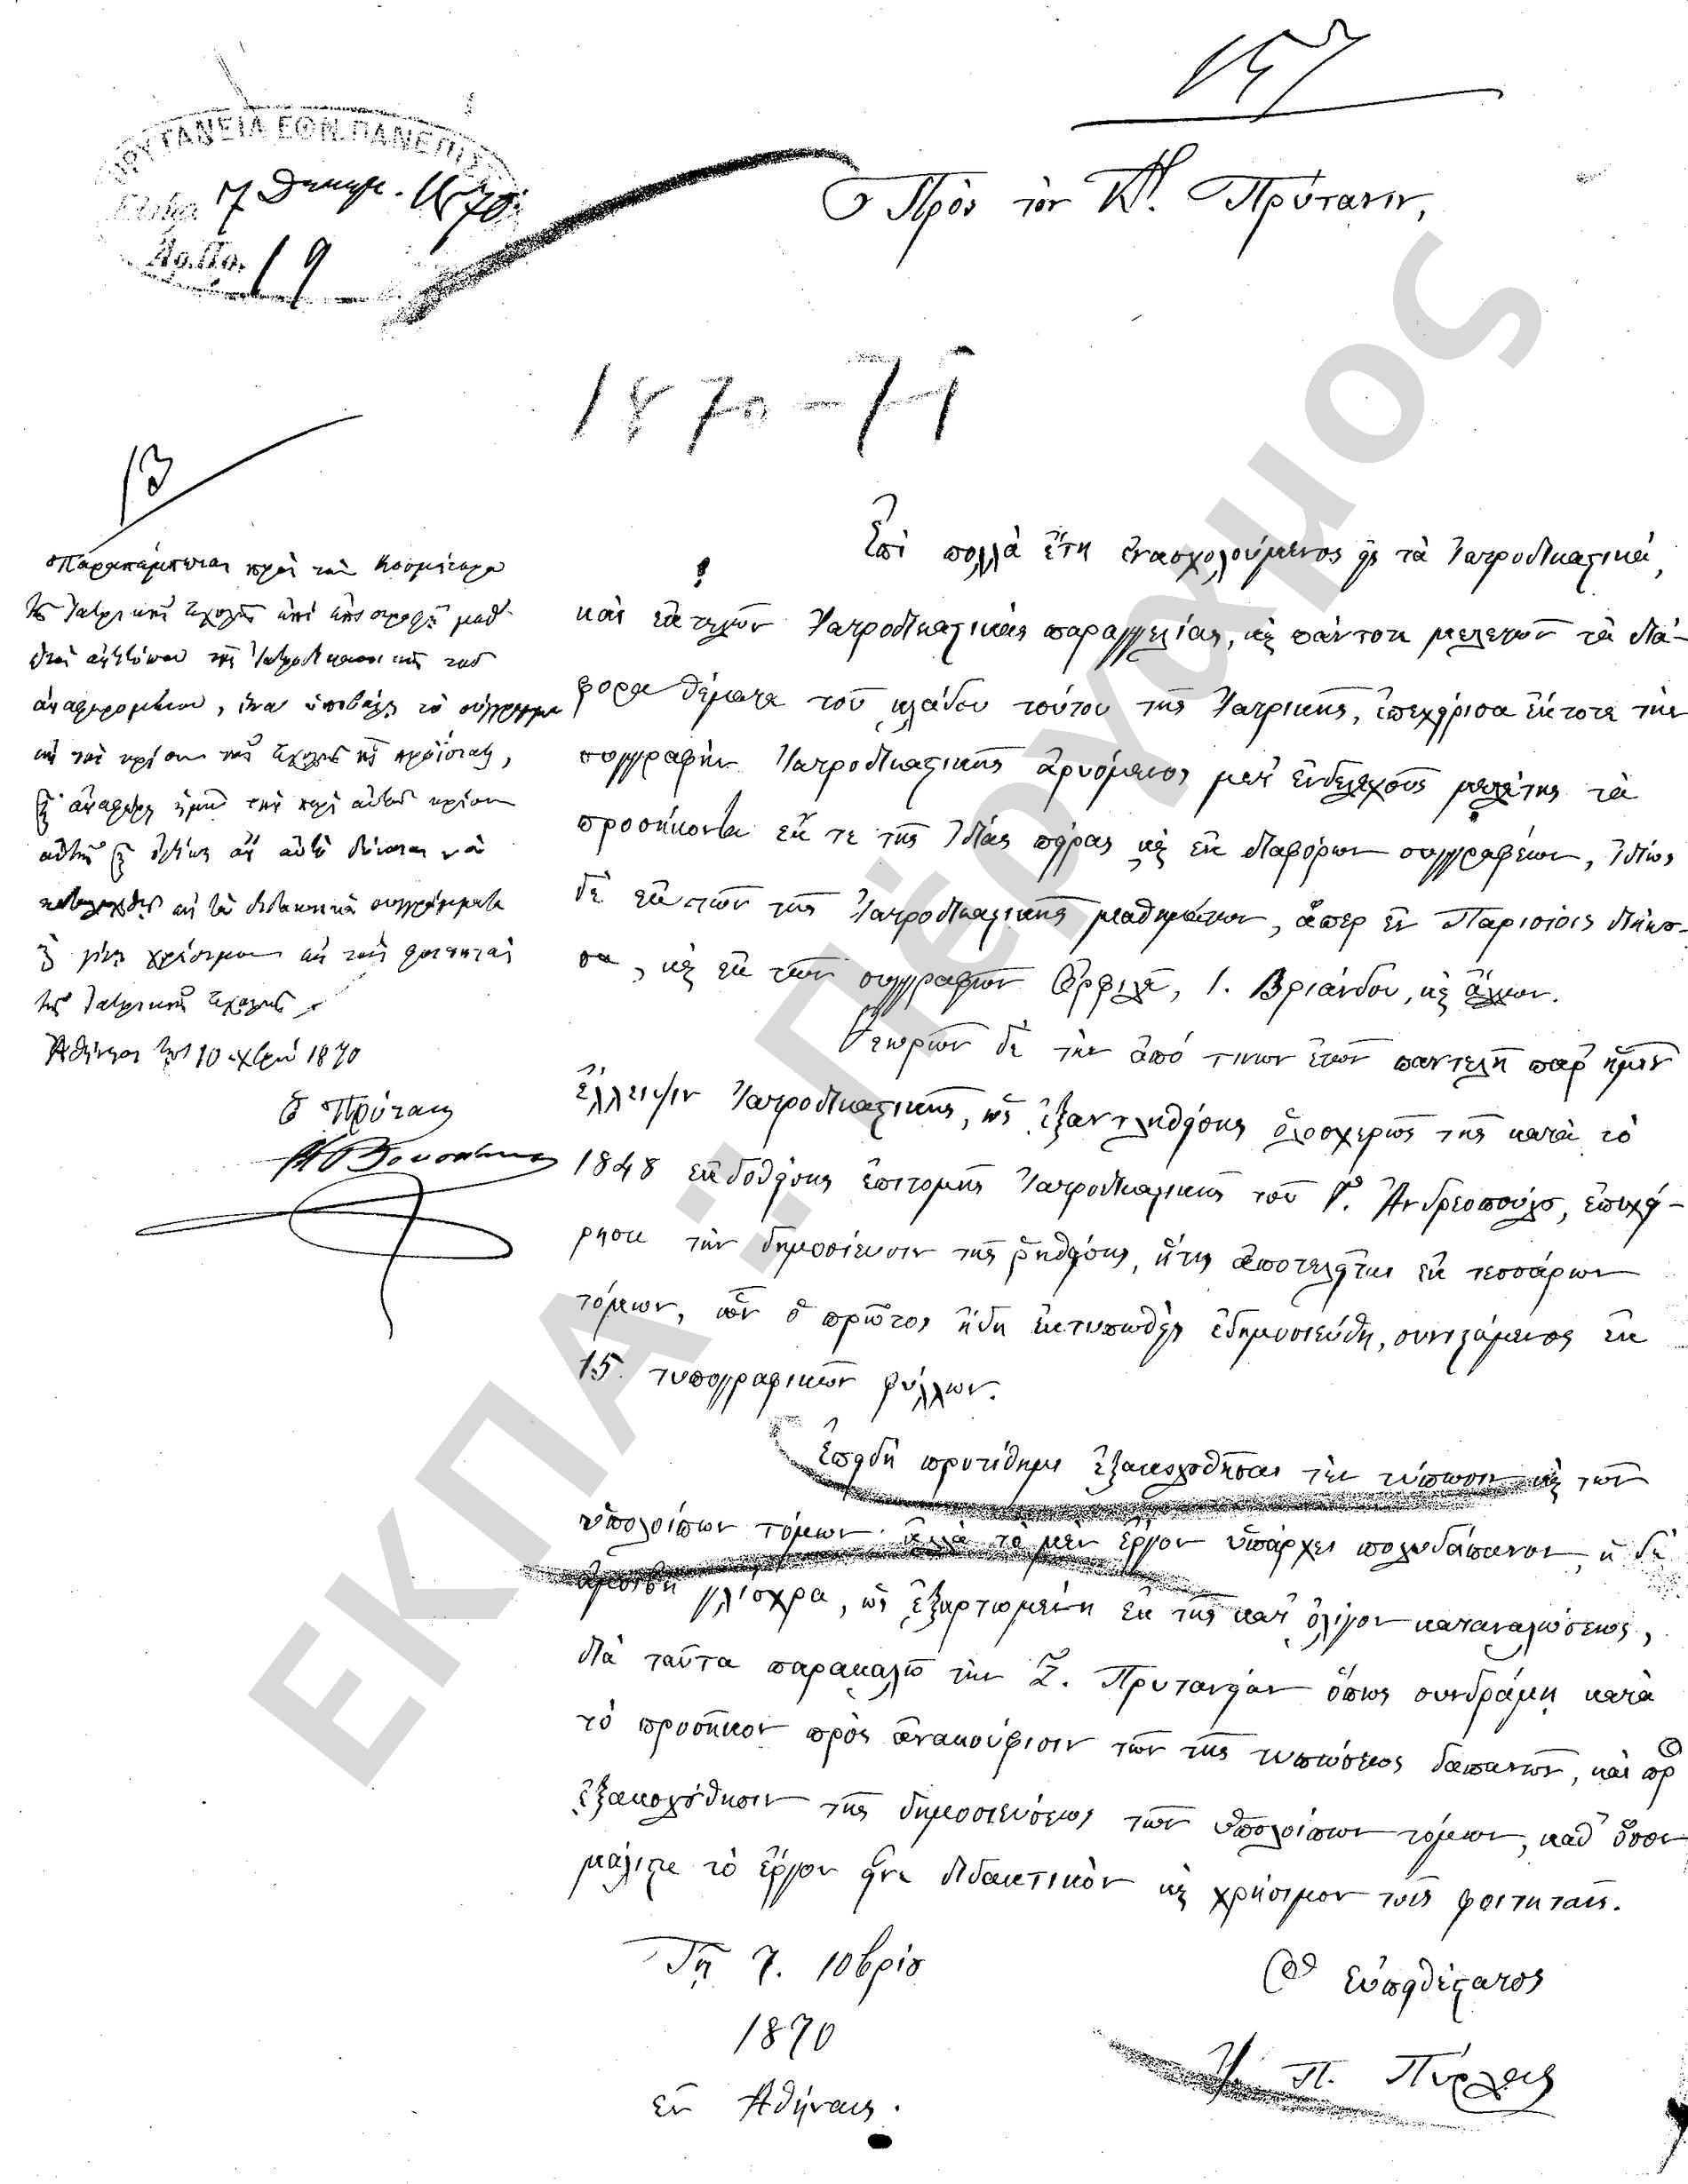 157
ΠΡΥΤΑΝΕΙΑ ΕΘΝ. ΠΑΝΕΠΙΣ
Εἰσήχ. 7 Δεκεμ. 1870
Ἀρ. Πρ. 19
Πρὸς τὸν Κον. Πρύτανιν,
1870-71
13
Παραπέμπεται πρὸς τὸν Κοσμήτορα
τῆς Ἰατρικῆς Σχολῆς ἐπὶ ἐπιστροφῇ μεθ'
ἑνὸς ἀντιτύπου τῆς Ἰατροδικαστικῆς τοῦ
ἀναφερομένου, ἵνα ὑποβάλῃ τὸ σύγγραμμα
εἰς τὴν κρίσιν τῆς Σχολῆς ἧς προΐσταται,
καὶ ἀναφέρῃ ἡμῖν τὴν περὶ αὐτοῦ κρίσιν
αὐτῆς καὶ ἰδίως ἂν αὐτὸ δύναται νὰ
καταταχθῇ εἰς τὰ διδακτικὰ συγγράμματα
καὶ γίνῃ χρήσιμον εἰς τοὺς φοιτητὰς
τῆς Ἰατρικῆς Σχολῆς
Ἀθήνησι τῇ 10 1870
Ὁ Πρύτανις
Ἐπὶ πολλὰ ἔτη ἐνασχολούμενος εἰς τὰ Ἰατροδικαστικά,
καὶ ἐκτελῶν Ἰατροδικαστικὰς παραγγελίας, καὶ πάντοτε μελετῶν τὰ διά-
φορα θέματα τοῦ κλάδου τούτου τῆς Ἰατρικῆς, ἐπεχείρισα ἔκτοτε τὴν
συγγραφὴν Ἰατροδικαστικῆς ἀρυόμενος μετ' ἐνδελεχοῦς μελέτης τὰ
προσήκοντα ἔκ τε τῆς ἰδίας πείρας καὶ ἐκ διαφόρων συγγραφέων, ἰδίως
δὲ ἐκ τῶν τῆς Ἰατροδικαστικῆς μαθημάτων, ἅπερ ἐν Παρισίοις διήκου-
σα, καὶ ἐκ τῶν συγγραφῶν Ὀρφιλᾶ, Ι. Βριάνδου, καὶ ἄλλων.
Θεωρῶν δὲ τὴν ἀπό τινων ἐτῶν παντελῆ παρ' ἡμῖν
ἔλλειψιν Ἰατροδικαστικῆς, ὡς ἐξαντληθείσης ὁλοσχερῶς τῆς κατὰ τὸ
1848 ἐκδοθείσης ἐπιτομῆς Ἰατροδικαστικῆς τοῦ Γ. Ἀνδρεοπούλου, ἐπεχεί-
ρησα τὴν δημοσίευσιν τῆς ῥηθείσης, ἥτις ἀποτελεῖται ἐκ τεσσάρων
τόμων, ὧν ὁ πρῶτος ἤδη ἐκτυπωθεὶς ἐδημοσιεύθη, συνιστάμενος ἐκ
15 τυπογραφικῶν φύλλων.
Ἐπειδὴ προτίθημι ἐξακολουθῆσαι τὴν τύπωσιν καὶ τῶν
ὑπολοίπων τόμων· ἀλλὰ τὸ μὲν ἔργον ὑπάρχει πολυδάπανον, ἡ δὲ
ἀμοιβὴ γλίσχρα, ὡς ἐξαρτωμένη ἐκ τῆς κατ' ὀλίγον καταναλώσεως,
διὰ ταῦτα παρακαλῶ τὴν Σ. Πρυτανείαν ὅπως συνδράμῃ κατὰ
τὸ προσῆκον πρὸς ἀνακούφισιν τῶν τῆς τυπώσεως δαπανῶν, καὶ πρὸς
ἐξακολούθησιν τῆς δημοσιεύσεως τῶν ὑπολοίπων τόμων, καθ' ὅσον
μάλιστα τὸ ἔργον εἶναι διδακτικὸν καὶ χρήσιμον τοῖς φοιτηταῖς.
Τῇ 7. 10βρίου
1870
ἐν Ἀθήναις.
Ὁ εὐπειθέστατος
Ἰ. Π. Πύρλας
ΕΚΠΑ :: Πέργαμος